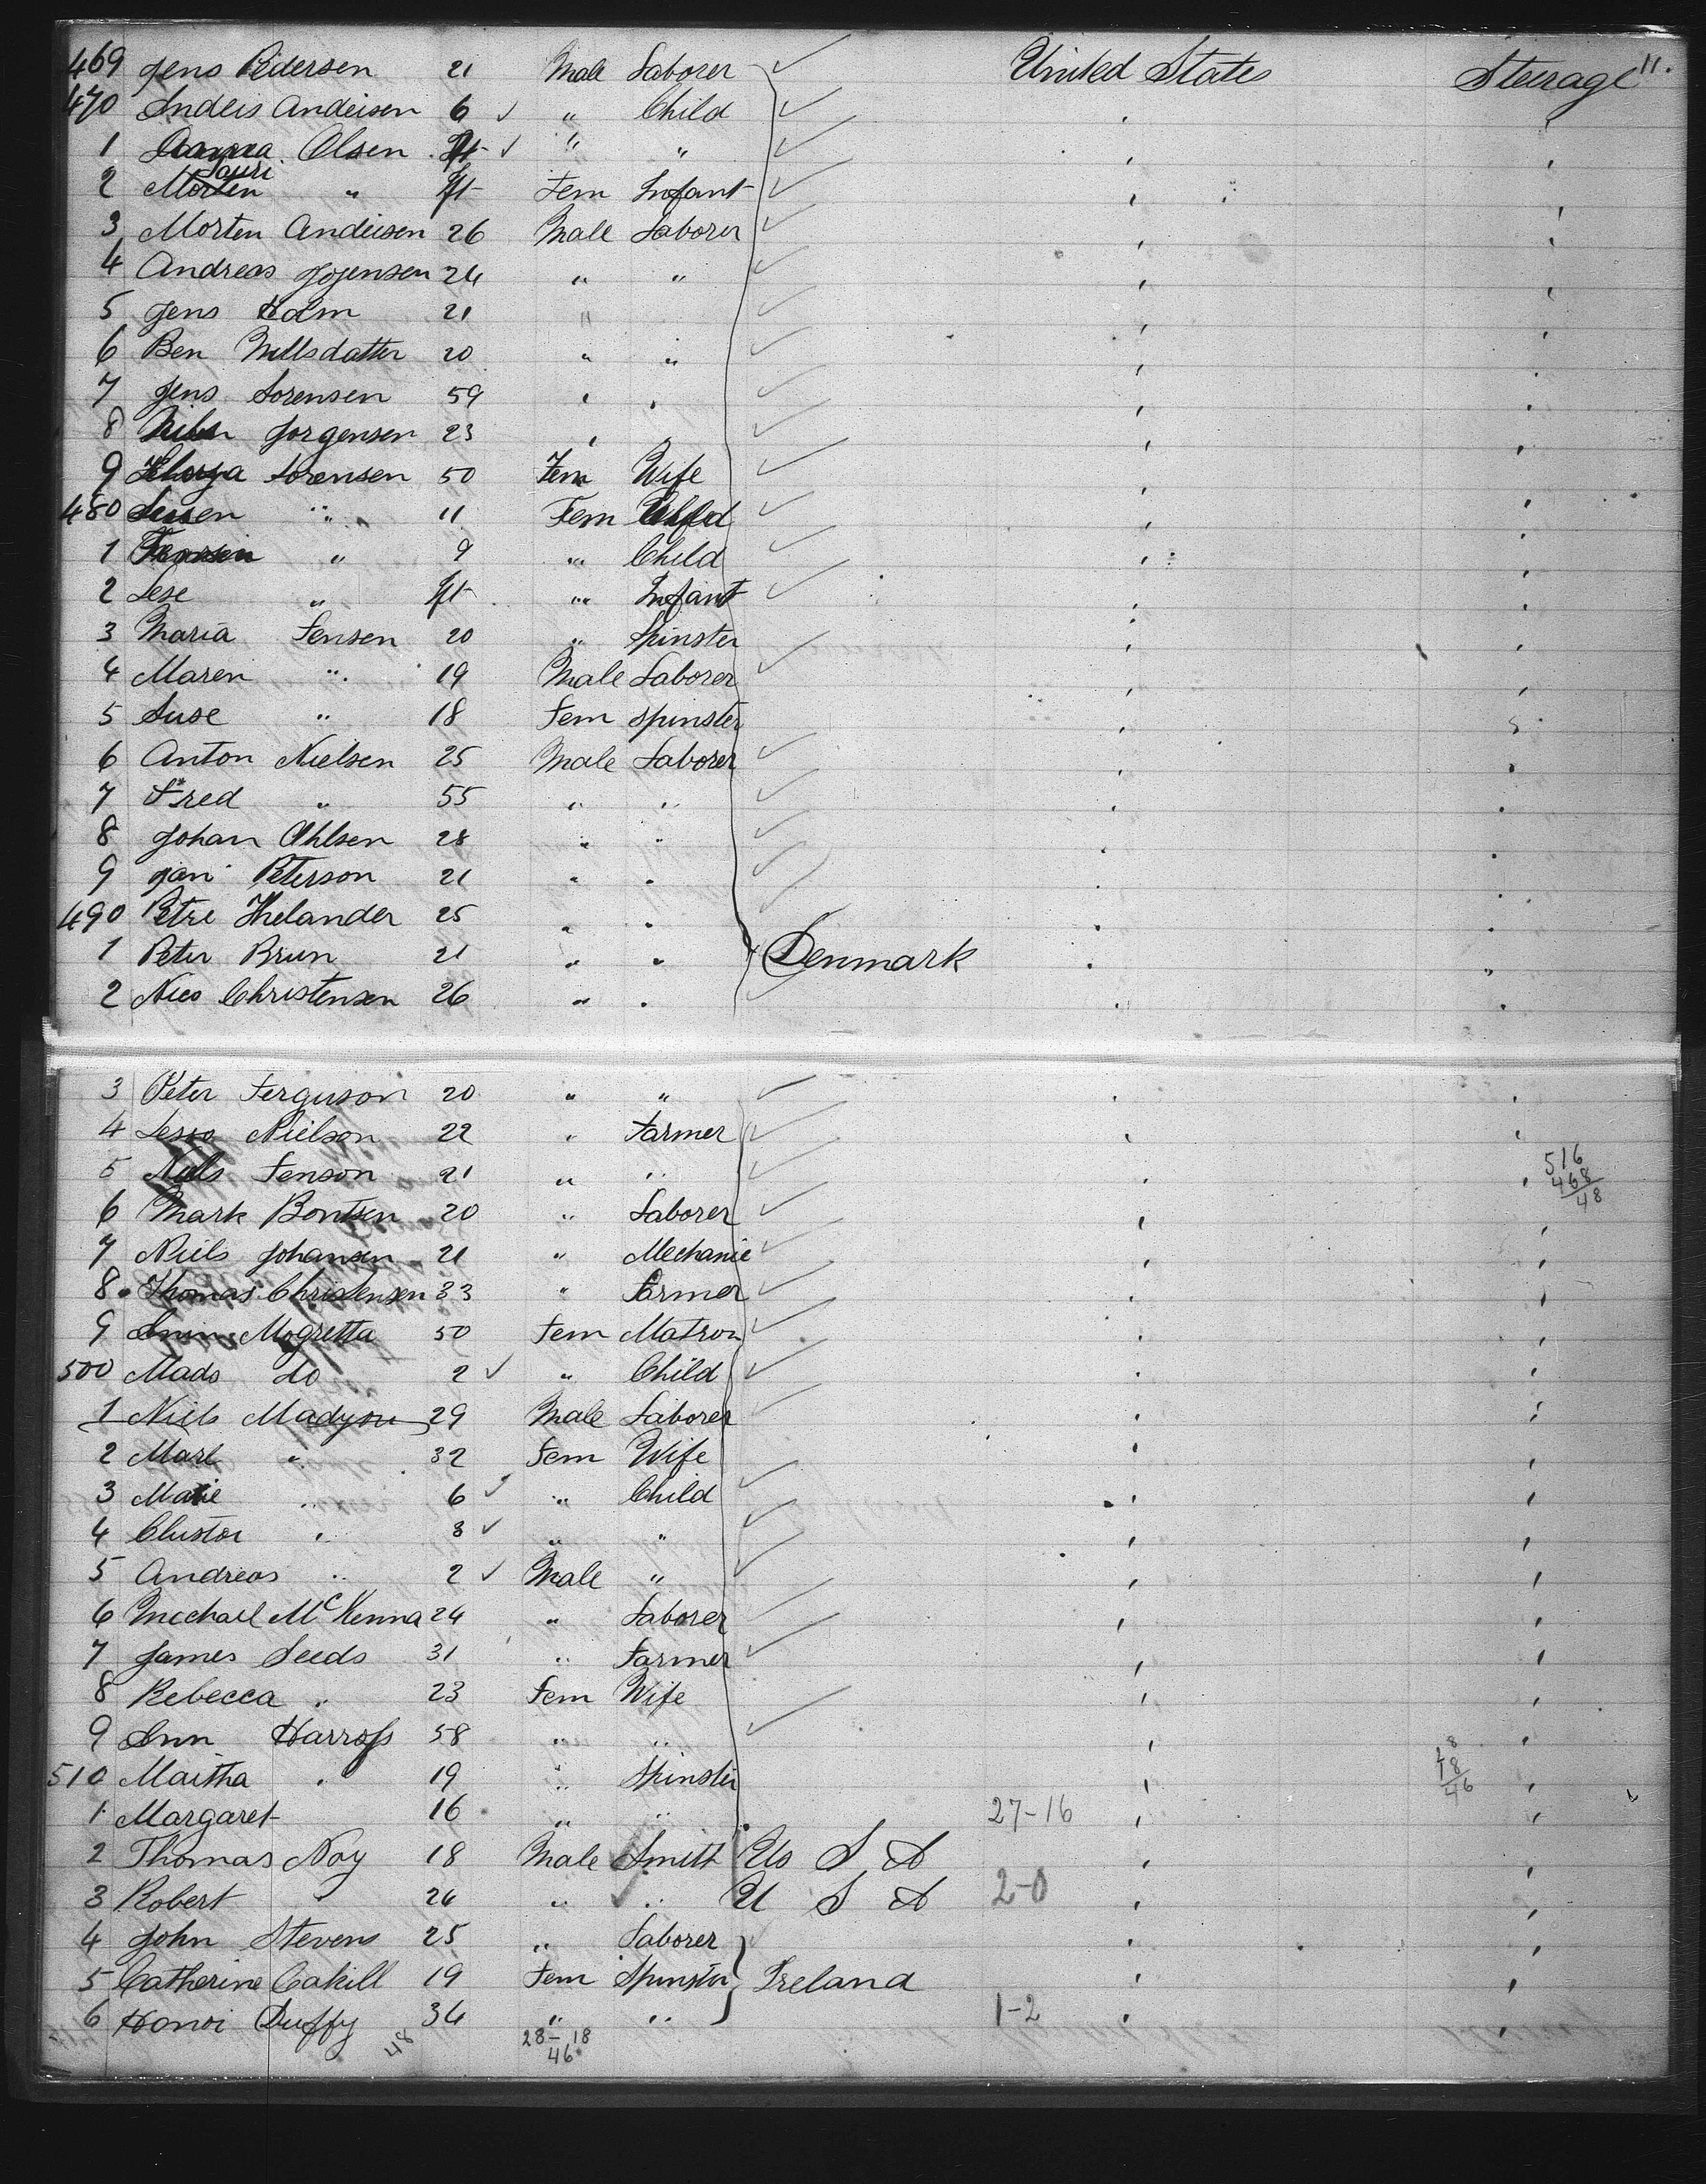 11.
469 Jens Pedersen 21 Male Laborer United States Steerage
470 Andeis Andeisen 6 " Child
1 Olsen " "
2 Lauri " Ift Fem Infant
3 Morten Andeisen 26 Male Laborer
4 Andreas Jojensen 24 " "
5 Jens Holm 21 "
6 Ben Nillsdatter 20 " "
7 Jens Sorensen 59 " "
8 Jorgensen 23 " "
9 Sorensen 50 Fem Wife
480 " 11 Fem Child
1 " 9 " Child
2 Lese " Ift " Infant
3 Maria Jensen 20 " Spinster
4 Maren " 19 Male Laborer
5 Suse " 18 Fem Spinster
6 Anton Nielsen 25 Male Laborer
7 Fred " 55 " "
8 Johan Ohlsen 28 " "
9 Jan Peterson 21 " "
490 Petre Thelander 25 " "
1 Peter Brun 21 " " Denmark
2 Nies Christensen 26 " "
3 Peter Ferguson 20 " "
4 Nielson 22 " Farmer
5 Niels Jenson 21 " "
516
468
48
6 Mark Bontsen 20 " Laborer
7 Niels Johansen 21 " Mechanic
8 Thomas Christensen 33 " Farmer
9 Mogretta 50 Fem Matron
500 Mads do 2 " Child
1 Niels Madyson 29 Male Laborer
2 Mare " 32 Fem Wife
3 Marie " 6 " Child
4 Clustor " 3 " "
5 Andreas " 2 Male "
6 Michael McKenna 24 " Laborer
7 James Seeds 31 " Farmer
8 Rebecca " 23 Fem Wife
9 Ann Harross 58 " "
510 Martha " 19 " Spinster
1 Margaret 16 " " 27-16
2 Thomas Noy 18 Male Smith U S A
3 Robert " 24 " " U S A 2-0
4 John Stevens 25 " Laborer
5 Catherine Cahill 19 Fem Spinster Ireland
6 Duffy 34 " " 1-2
48 28-18
46